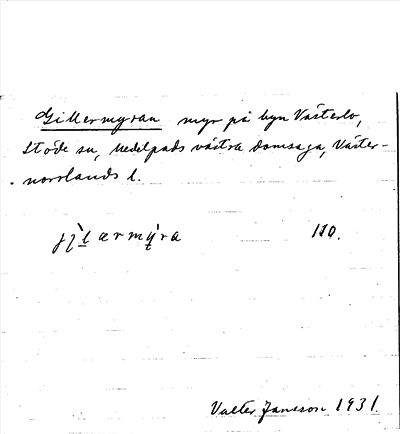 Gillermyran myr på byn Västerlo,
Stöde sn, Medelpads västra domsaga, Väster-
norrlands l.
110.
Valter Jansson 1931.